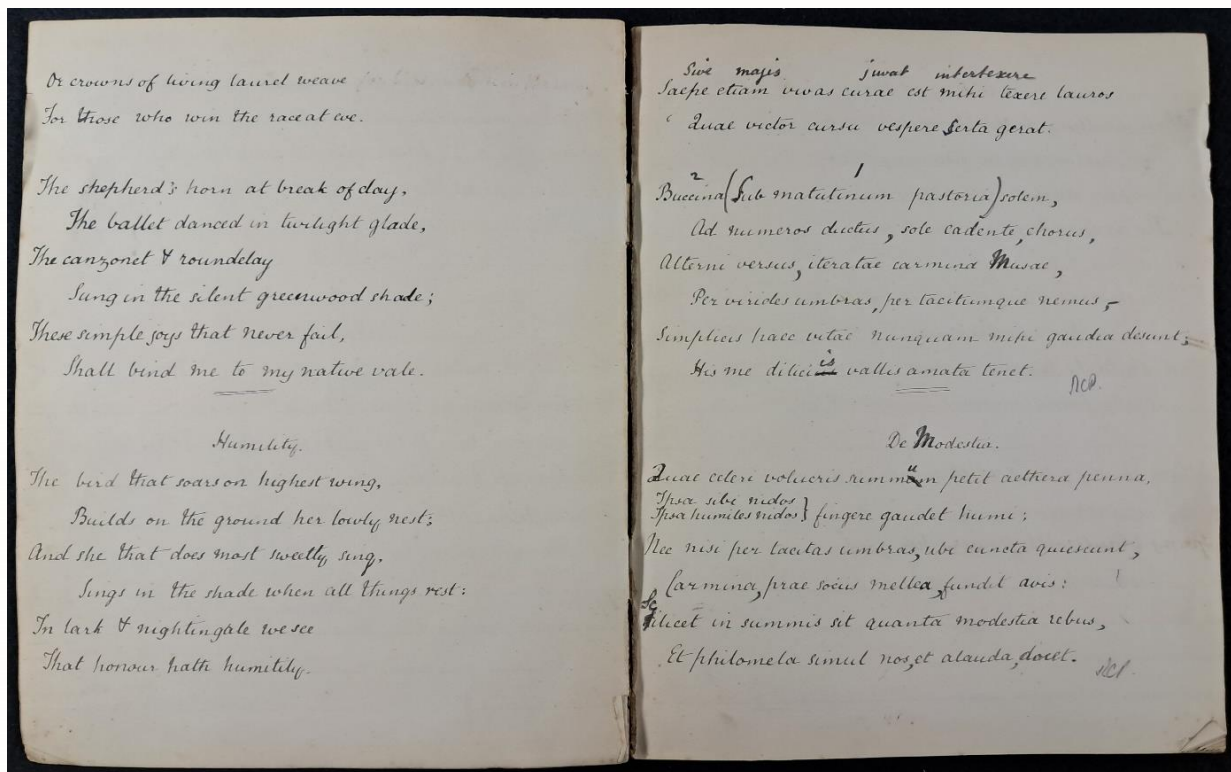 Or crowns of living laurel weave
For those who win the race at eve.
The shepherd's horn at break of day,
The ballet danced in twilight glade,
The canzonet & roundelay
Sung in the silent greenwood shade;
These simple joys that never fail,
Shall bind me to my native vale.
Humility.
The bird that soars on highest wing,
Builds on the ground her lowly nest;
And she that does most sweetly sing,
Sings in the shade when all things rest:
In lark & nightingale we see
That honour hath humility.
Sive magis juvat intertexere
Saepe etiam vivas curae est mihi texere lauros
Quae victor cursu vespere serta gerat.
2 1
Buccina (sub matutinum pastoria) solem,
Ad numeros ductus, sole cadente, chorus,
Alterni versus, iteratae carmina Musae,
Per virides umbras, per tacitumque nemus,-
Simplicis haec vitae nunquam mihi gaudia desunt;
is
His me delici vallis amata tenet.
De Modestia.
Quae celeri volucris summum petit aethera penna,
Ipsa sibi nidos
Ipsa humiles nidos } fingere gaudet humi;
Nec nisi per tacitas umbras, ubi cuncta quiescunt,
Carmina, prae sociis mellea, fundit avis:
Scilicet in summis sit quanta modestia rebus,
Et philomela simul nos, et alauda, docet.